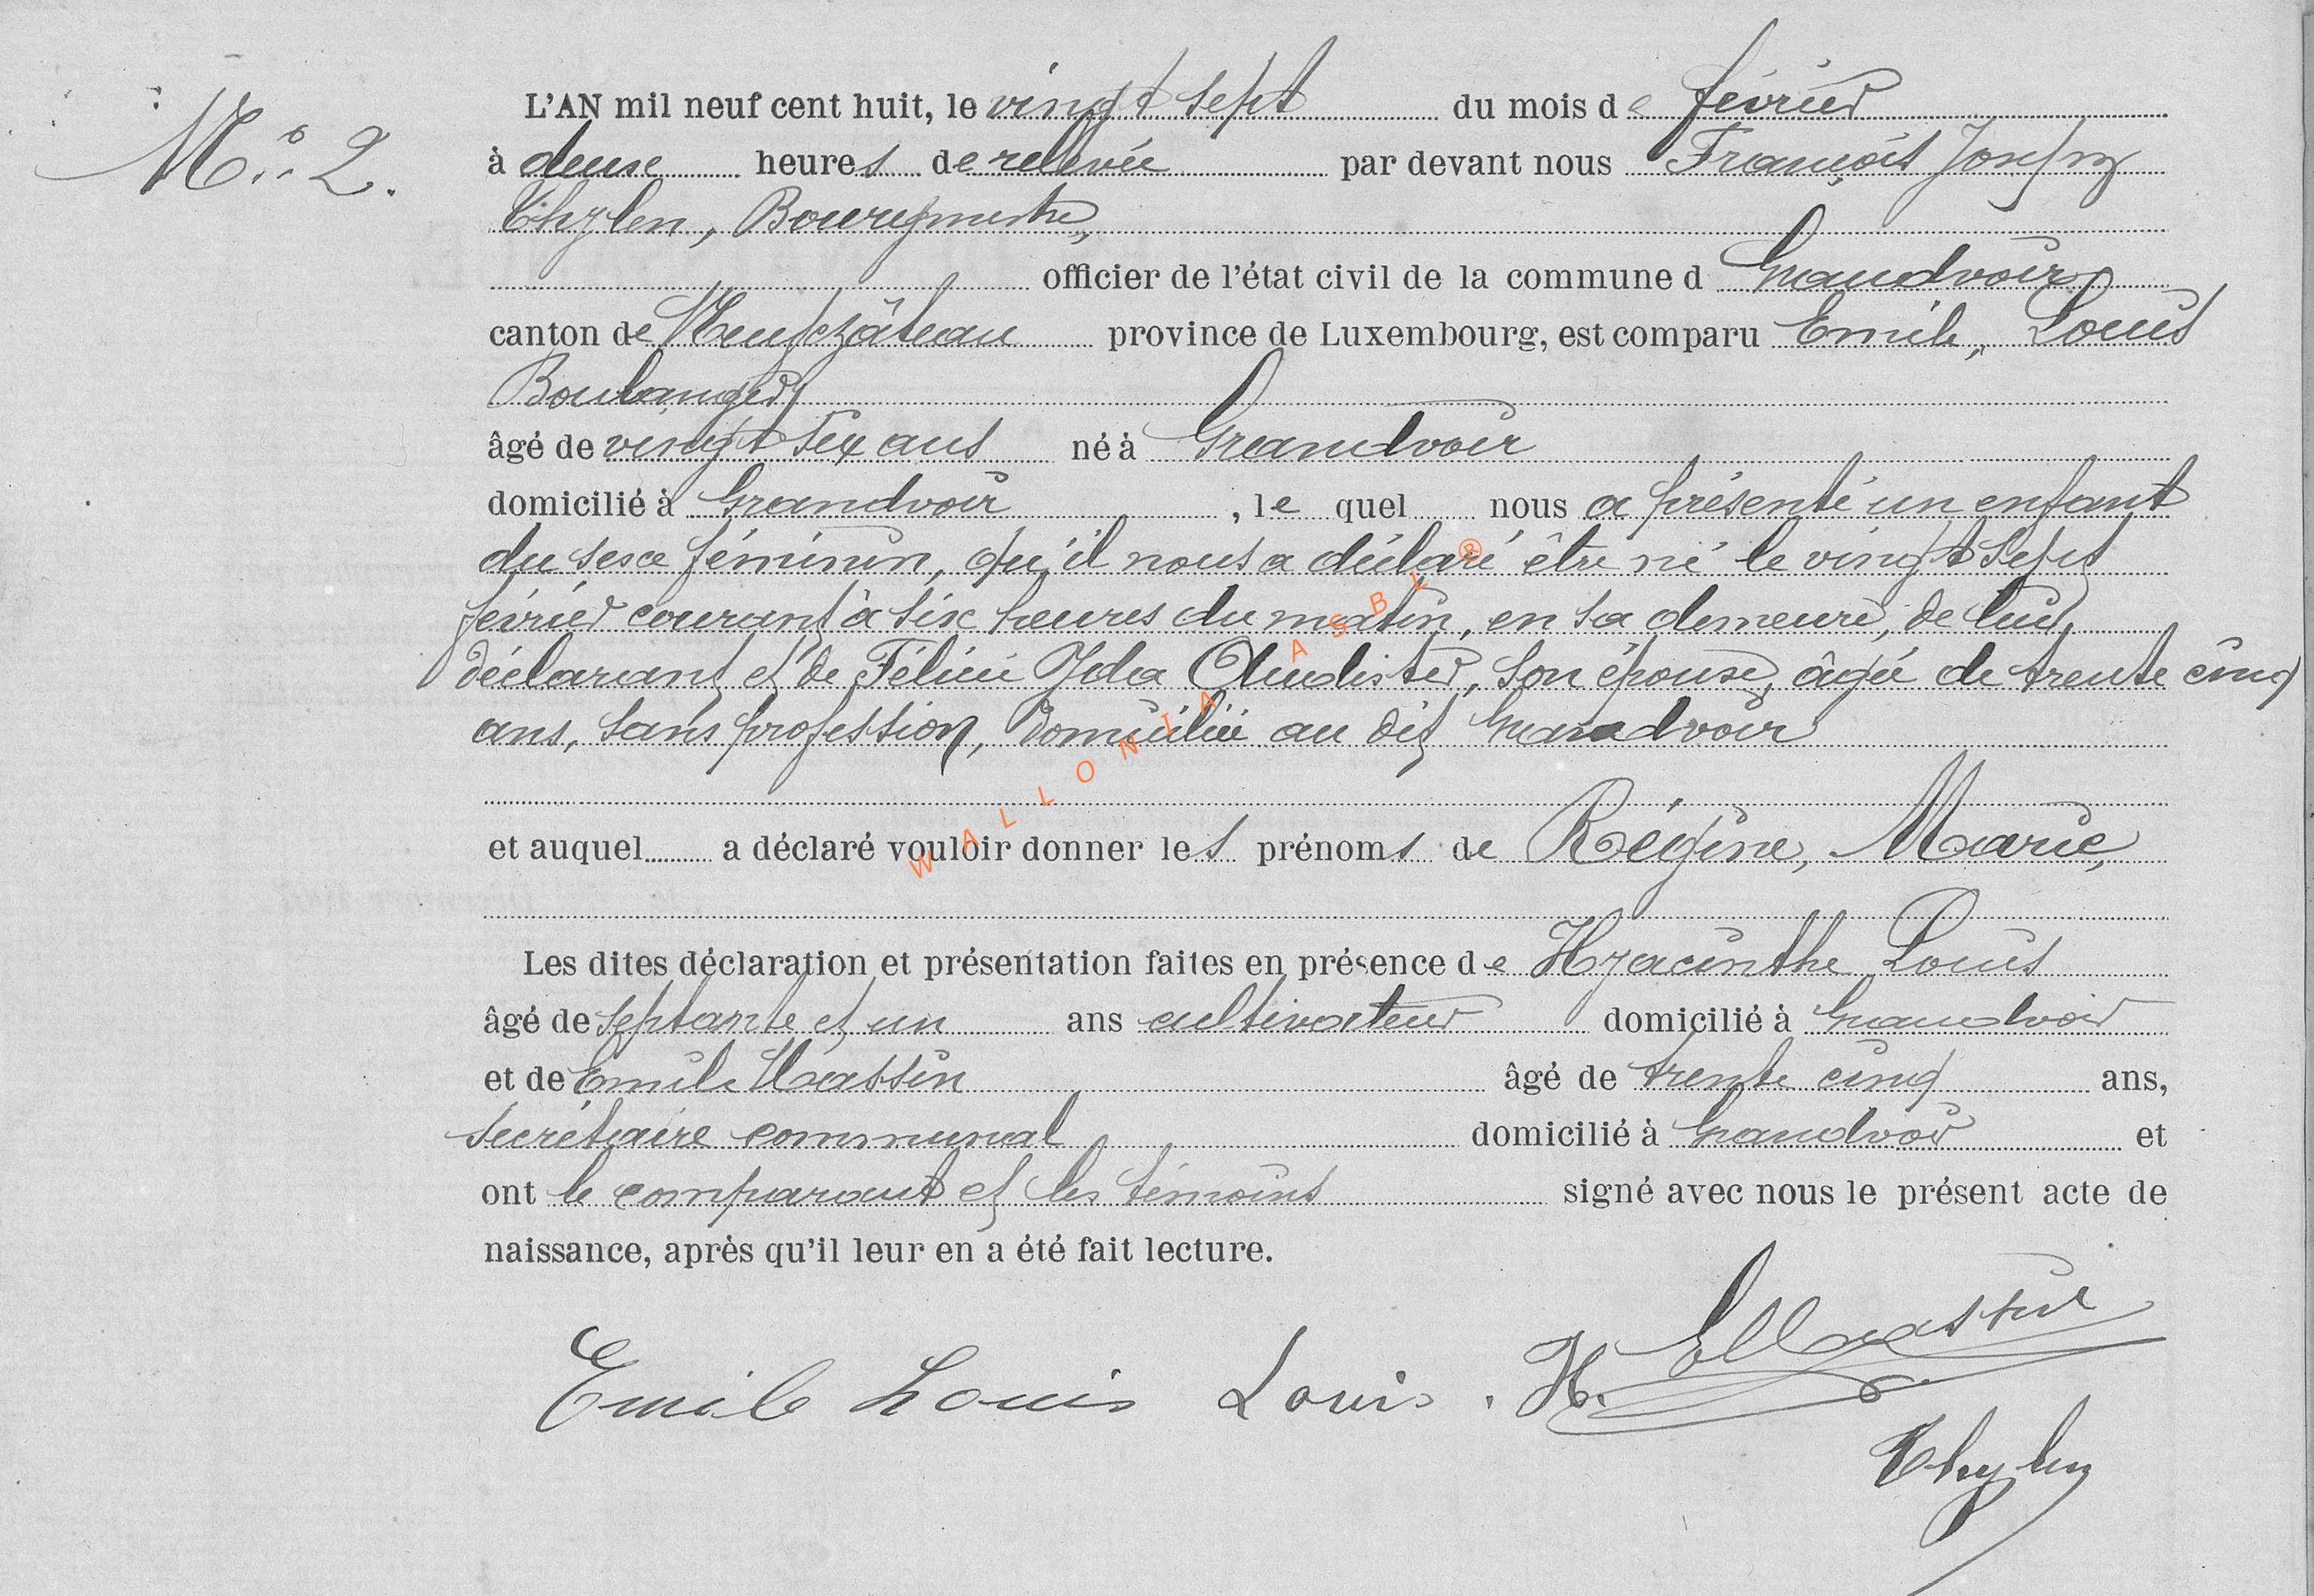 N.° 2.
L'AN mil neuf cent huit, le vingt sept du mois de février
à deux heures de relevée par devant nous François Joseph
Thylen, Bourgmestre,
officier de l'état civil de la commune d Grandvoir
canton de Neufchâteau province de Luxembourg, est comparu Emile, Louis
Boulanger
âgé de vingt six ans né à Grandvoir
domicilié à Grandvoir , le quel nous a présenté un enfant
du sexe féminin, qu'il nous a déclaré être né le vingt sept
février courant à six heures du matin, en sa demeure, de lui
déclarant et de Félicie Ida son épouse, âgée de trente cinq
ans, sans profession, domiciliée au dit Grandvoir
et auquel a déclaré vouloir donner les prénoms de Régine, Marie,
Les dites déclaration et présentation faites en présence de Hyacinthe Louis
âgé de septante et un ans cultivateur domicilié à Grandvoir
et de Emile Massin âgé de trente cinq ans,
secrétaire communal domicilié à Grandvoir et
ont le comparant et les témoins signé avec nous le présent acte de
naissance, après qu'il leur en a été fait lecture.
Emile Louis Louis . H. EMassin
Thylen
WALLONIA ASBL ®